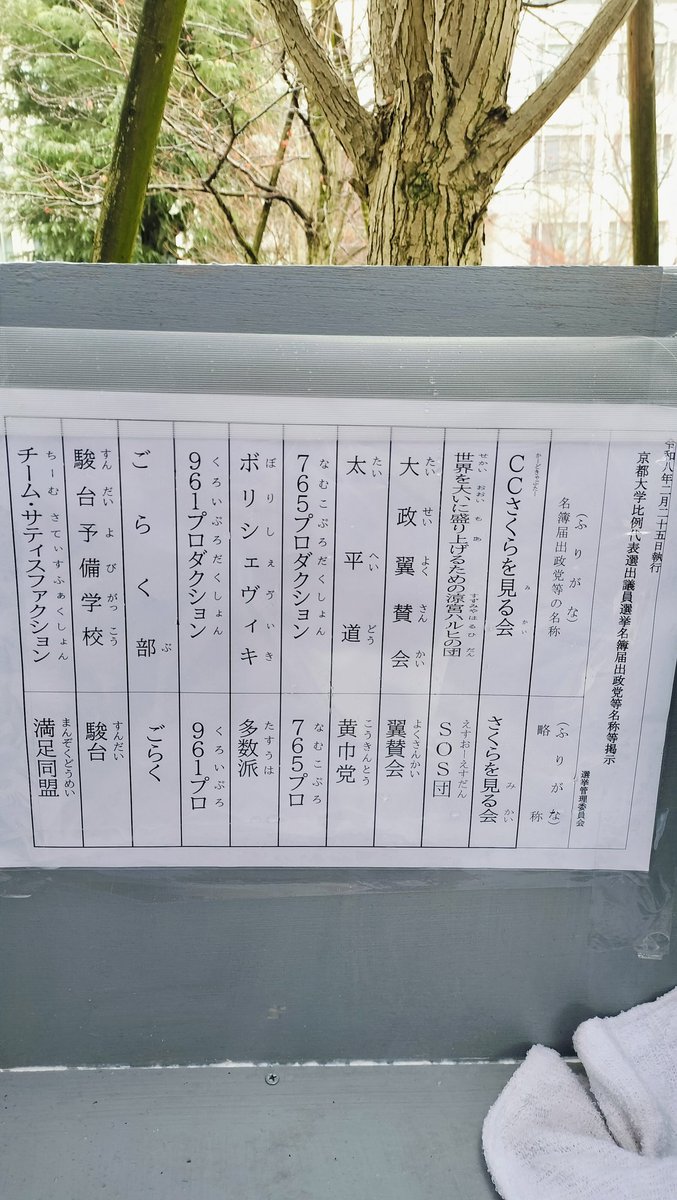 令和八年二月二十五日執行
京都大学比例代表選出議員選挙名簿届出政党等名称等掲示
選挙管理委員会
(ふりがな)
名簿届出政党等の名称
(ふりがな)
略称
かーどきゃぷたー み かい
CCさくらを見る会
み かい
さくらを見る会
せかい おおい も あ すずみやはるひ だん
世界を大いに盛り上げるための涼宮ハルヒの団
えすおーえすだん
SOS団
たいせいよくさんかい
大政翼賛会
よくさんかい
翼賛会
たいへいどう
太平道
こうきんとう
黄巾党
なむこぷろだくしょん
765プロダクション
なむこぷろ
765プロ
ぼりしぇゔぃき
ボリシェヴィキ
たすうは
多数派
くろいぷろだくしょん
961プロダクション
くろいぷろ
961プロ
ぶ
ごらく部
ごらく
すんだいよびがっこう
駿台予備学校
すんだい
駿台
ちーむさてぃすふぁくしょん
チーム・サティスファクション
まんぞくどうめい
満足同盟